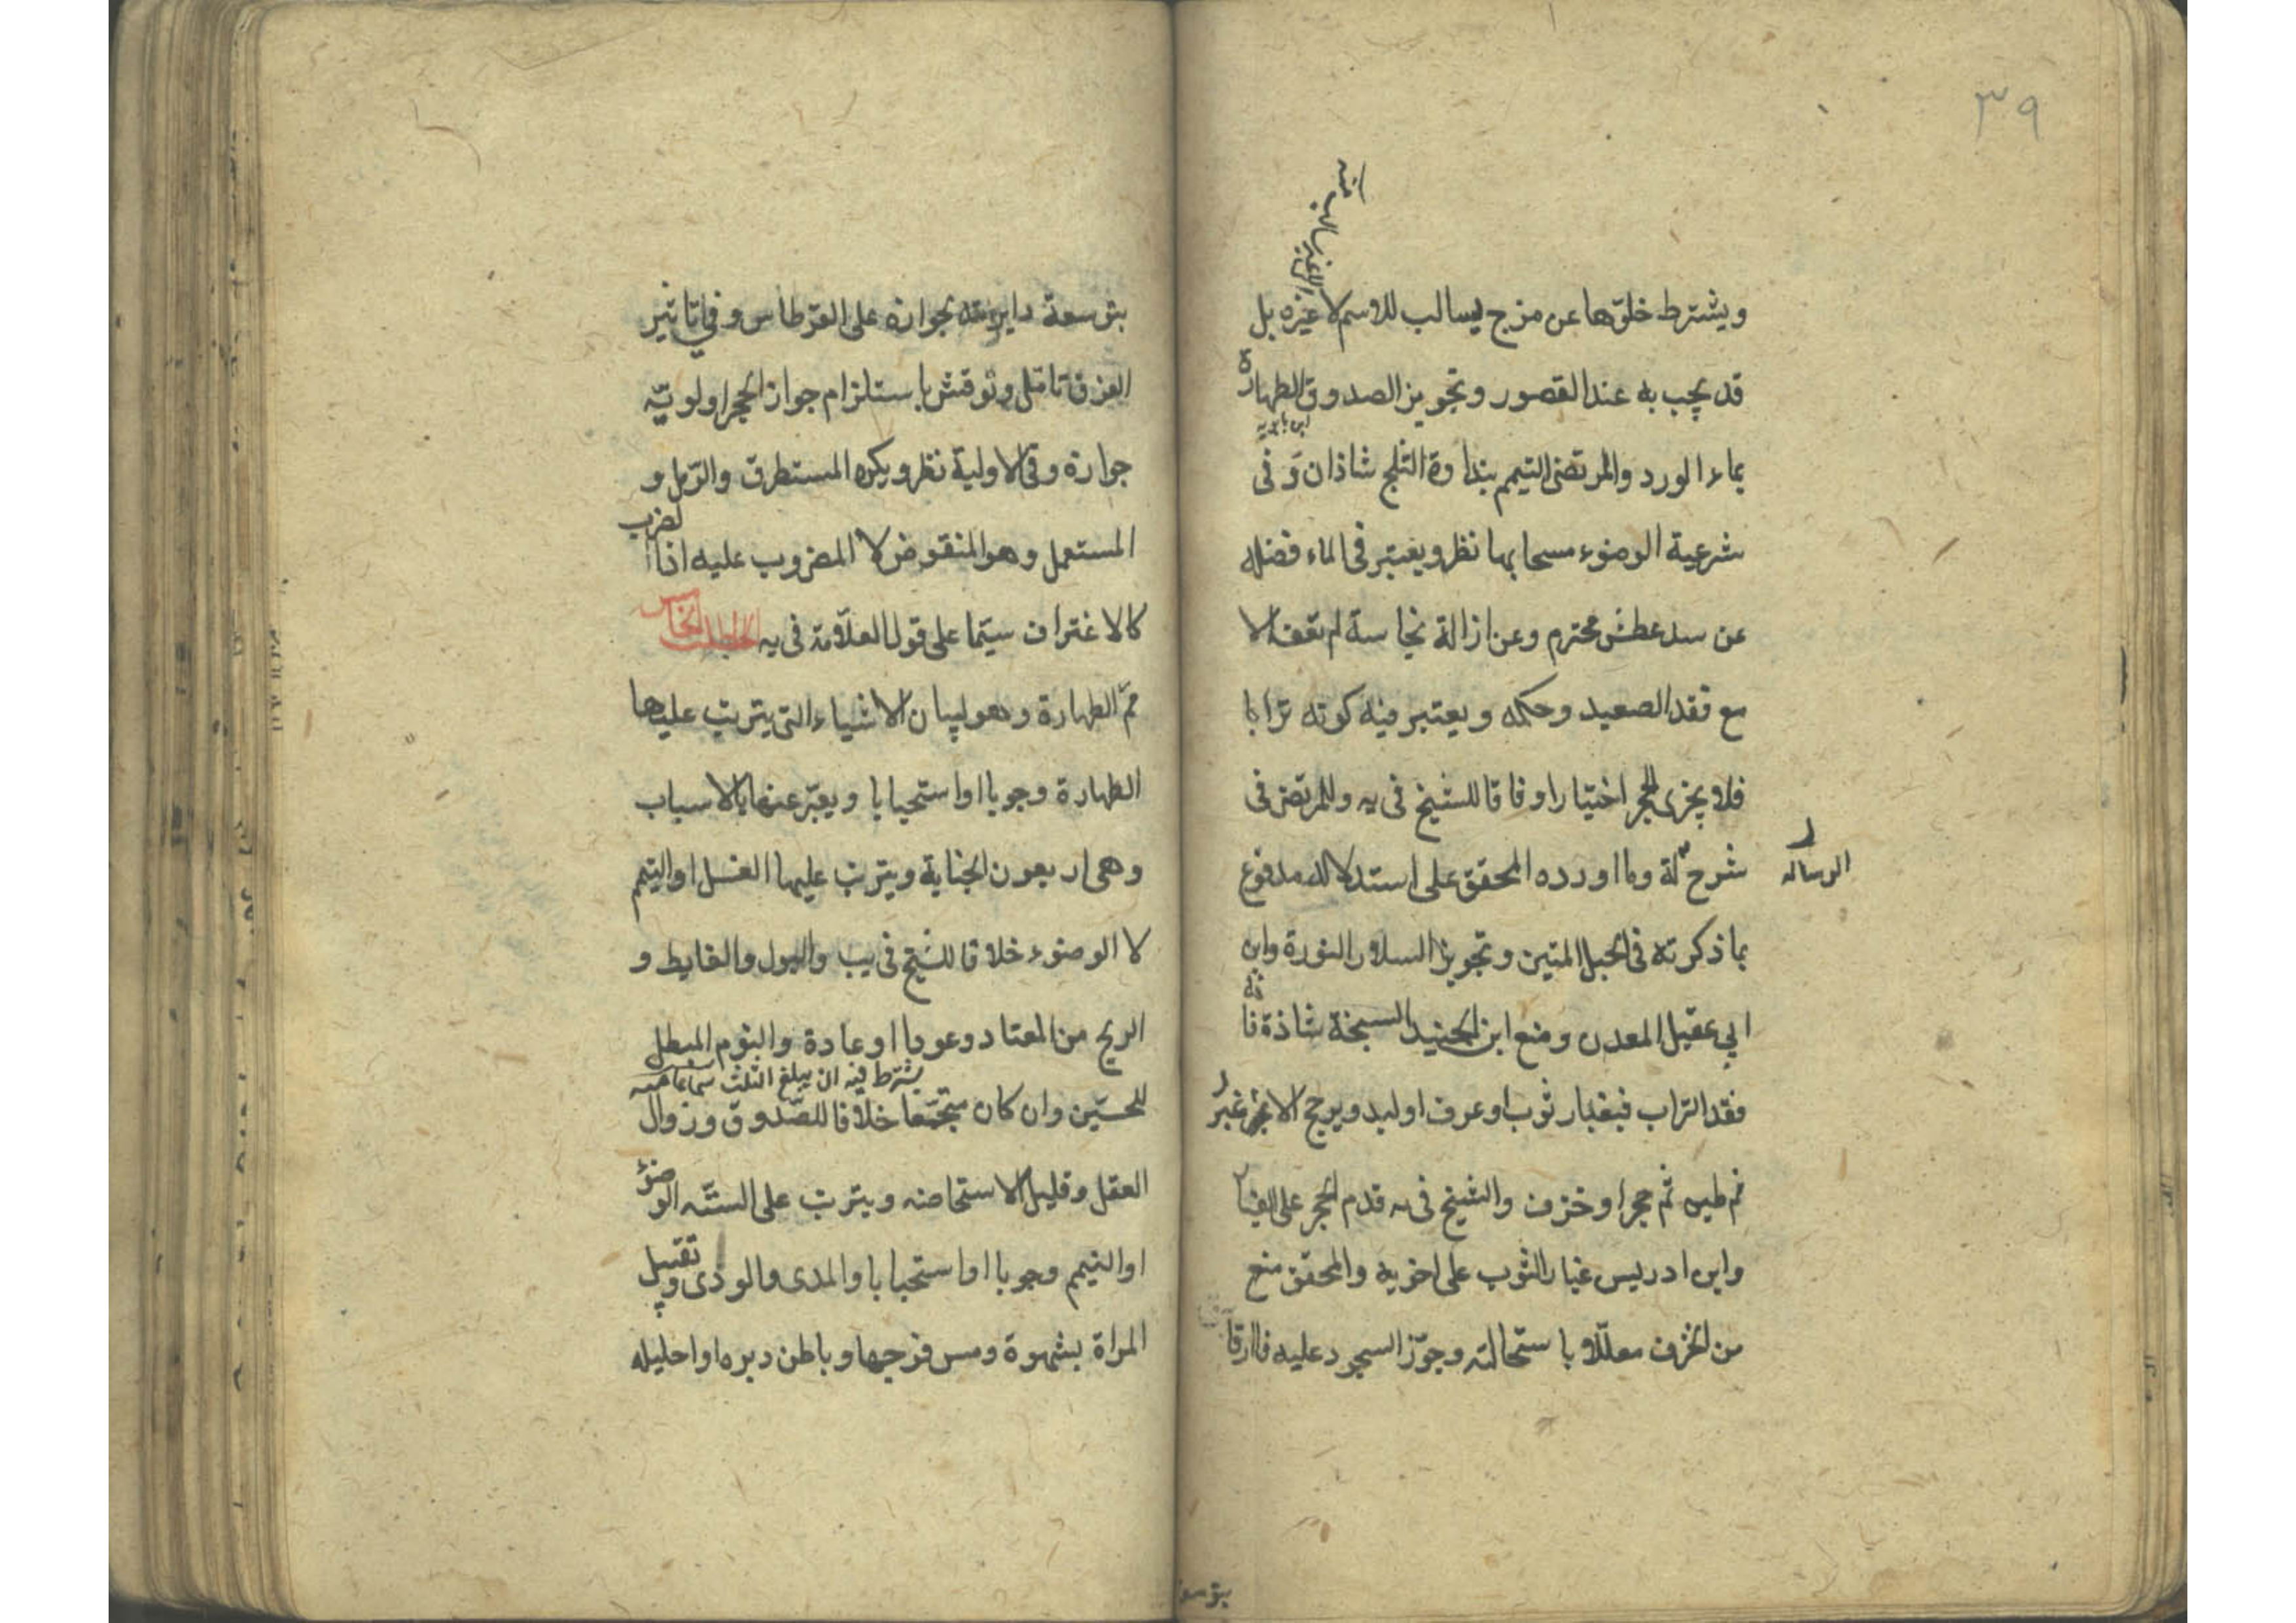 ٣٩
الغير سالب منه
ويشترط خلوّها عن مزج يسالب للاسم لا غيره بل
قد يجب به عند القصور وتجويز الصدوق الطهارة
ابن بابويه
بماء الورد والمرتضى التيمم بنداوة الثلج شاذان وفى
شرعية الوضوء مسحا بها نظر ويعتبر فى الماء فضله
عن سد عطش محترم وعن ازالة نجاسة لم تعف الا
مع فقد الصعيد وحكمه ويعتبر فيه كونه ترابا
فلا يجزى الحجر اختيارا وفاقا للشيخ فى يه وللمرتضى فى
شرح لة وما اورده المحقق على استدلاله مدفوع
الرساله
بما ذكرته فى الحبل المتين وتجويز السلار النورة وابن
ابي عقيل المعدن ومنع ابن الجنيد السبخة شاذة فا
فقد التراب فبغبار ثوب او عرف او لبد ويرجح الاغبر
ثم طين ثم حجر او خزف والشيخ فى يه قدم الحجر على الغبار
وابن ادريس غبار الثوب على اخويه والمحقق منع
من الخزف معلّلا باستحالته وجوّز السجود عليه فاارقا
بتوسعة
بتوسعة دايرته لجوازه على القرطاس وفي تاثير
الفرق تامّل ونوقش باستلزام جواز الحجر اولويّه
جوازه وفى الاولية نظر ويكره المستطرق والرّمل و
المستعمل وهو المنفوض لا المضروب عليه اذا لضرب
كالاغتراف سيّما على قول العلّامة فى يه المطلب الخامس
ممّ الطهارة وهو لبيان الاشياء التى يترتب عليها
الطهارة وجوبا او استحبابا ويعبّر عنها بالاسباب
وهى اربعون الجنابة ويترتب عليها الغسل او التيمم
لا الوضوء خلافا للشيخ فى يب والبول والغايط و
الريح من المعتاد وعودا او عادة والنوم المبطل
يشترط فيه ان يبلغ الثلث سماعا منه
للحسّين وان كان مجتمعا خلافا للصّدوق وزوال
العقل وقليل الاستحاضه ويترتب على الستّه الوضوء
او التيمم وجوبا او استحبابا والمذى والوذى وتقبيل
المراة بشهوة ومس فرجها وباطن دبره او احليله